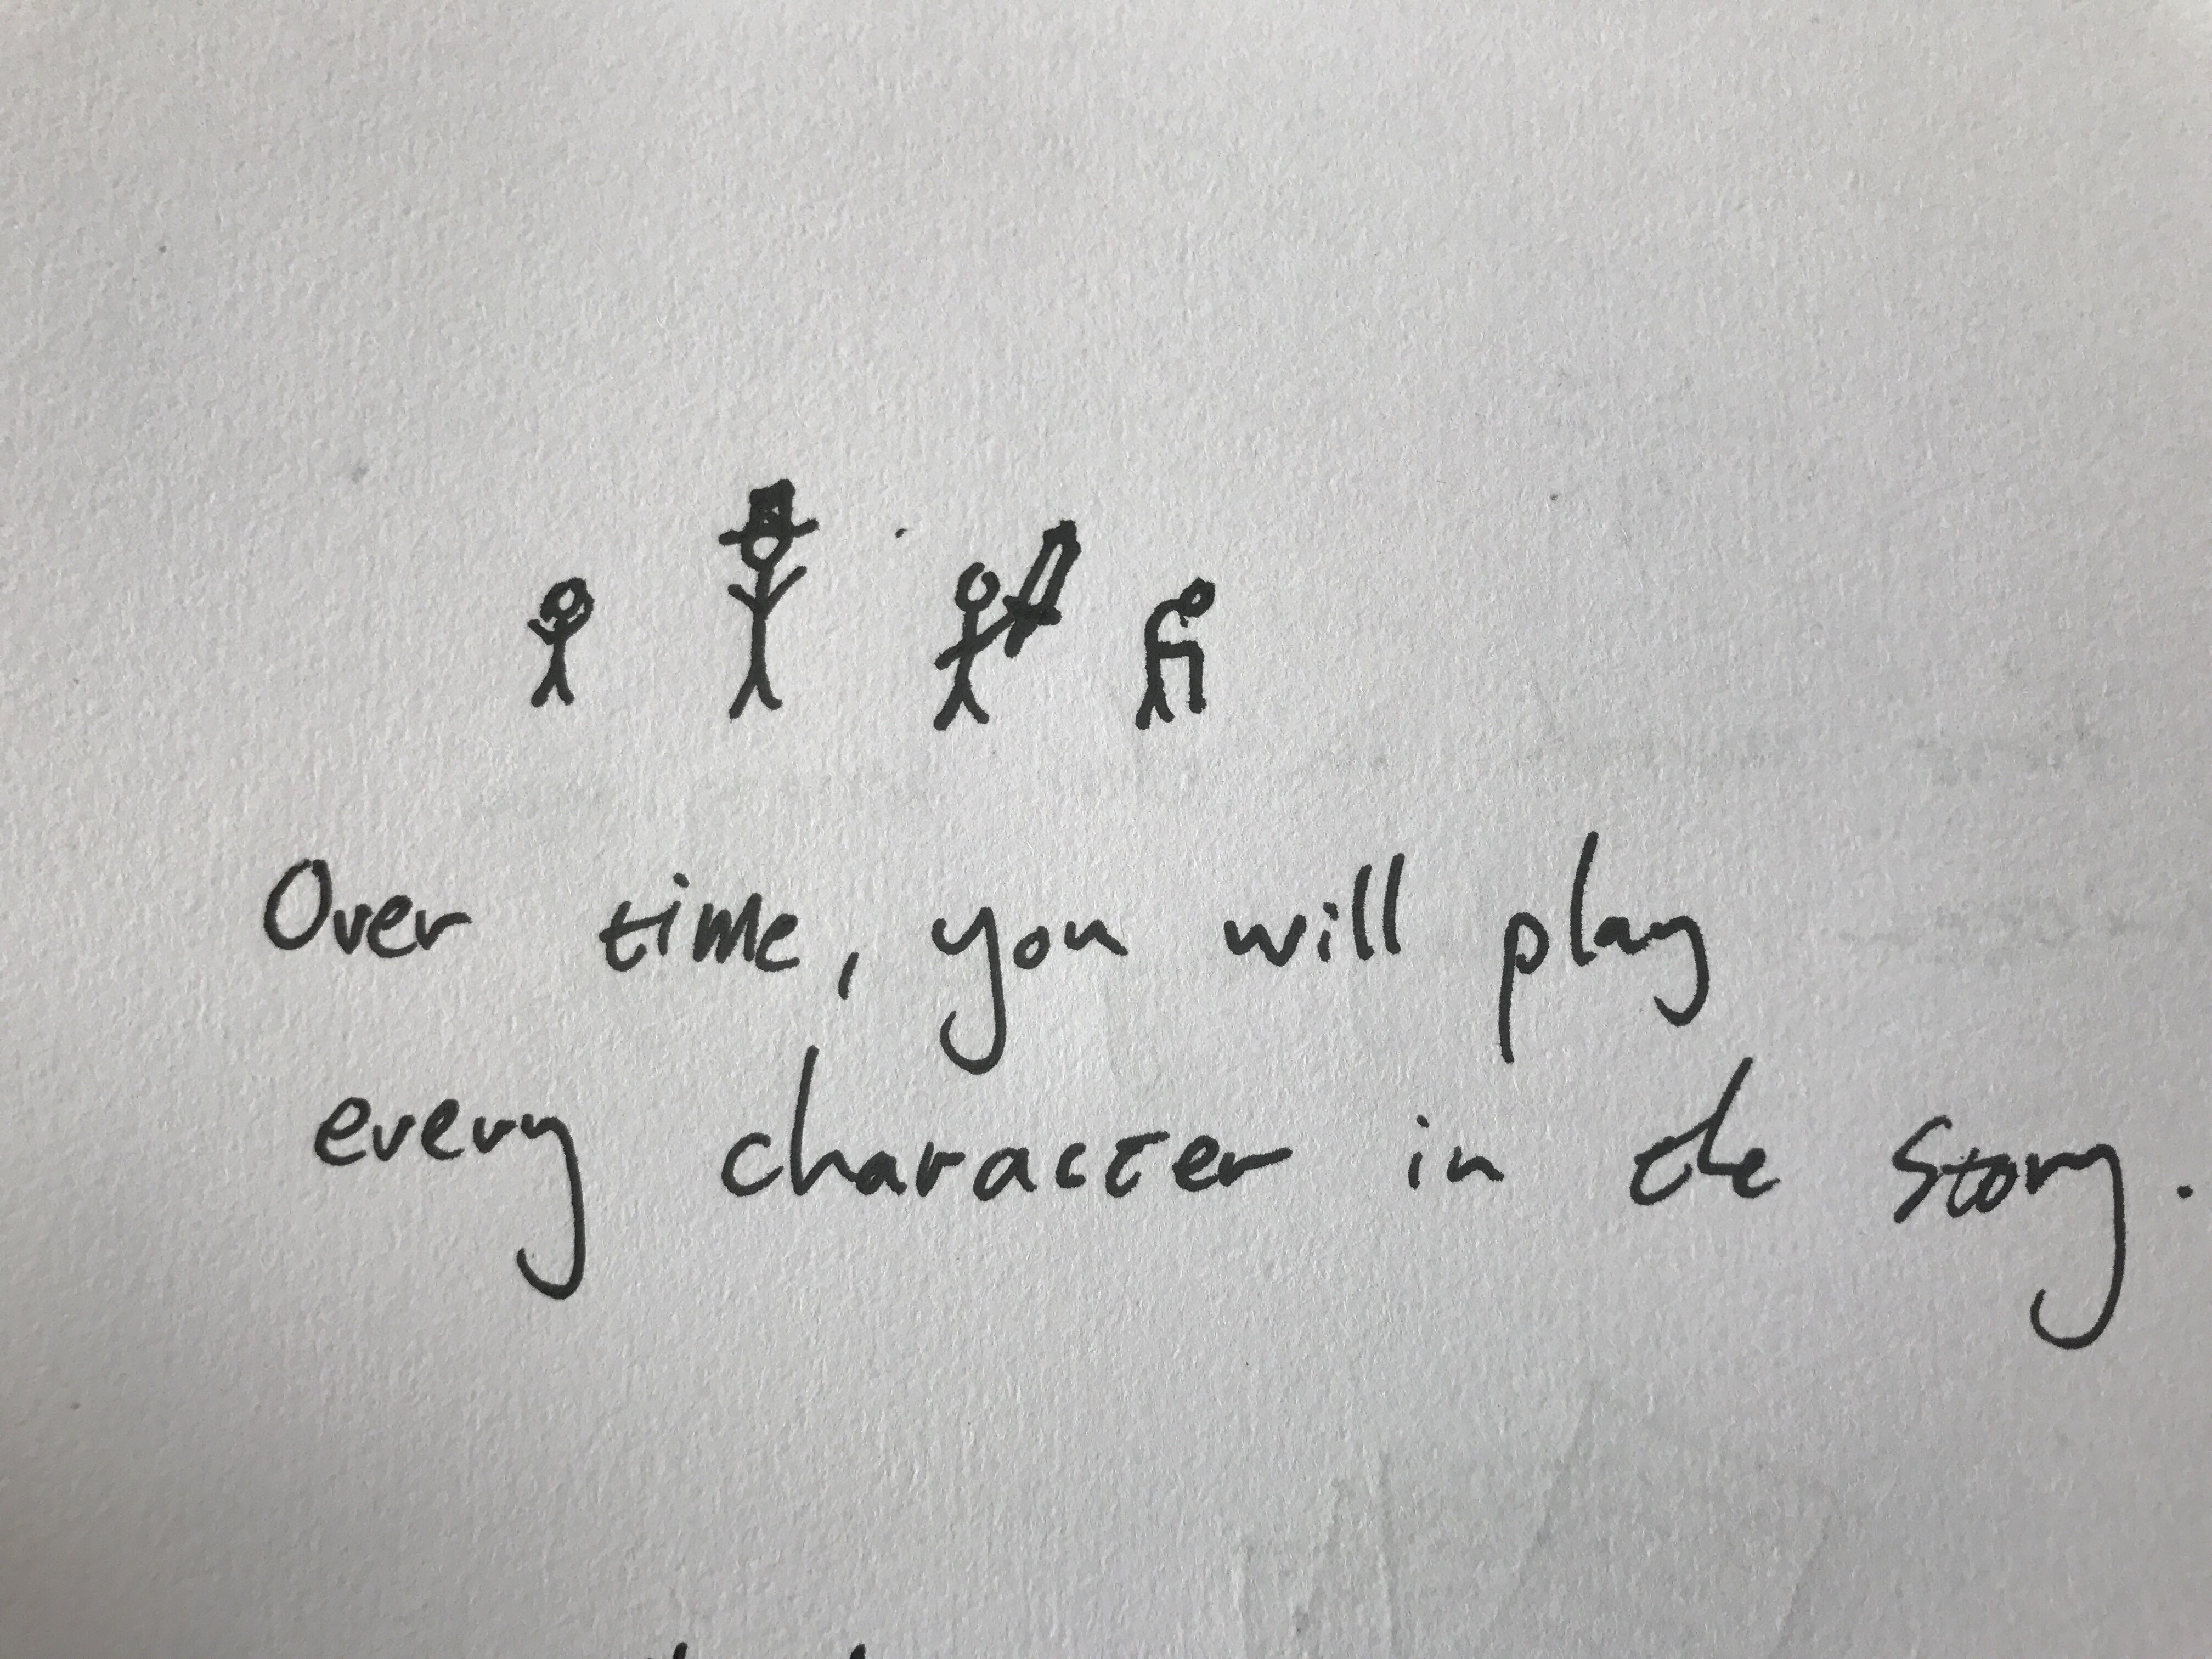 Over time, you will play
every character in the story.